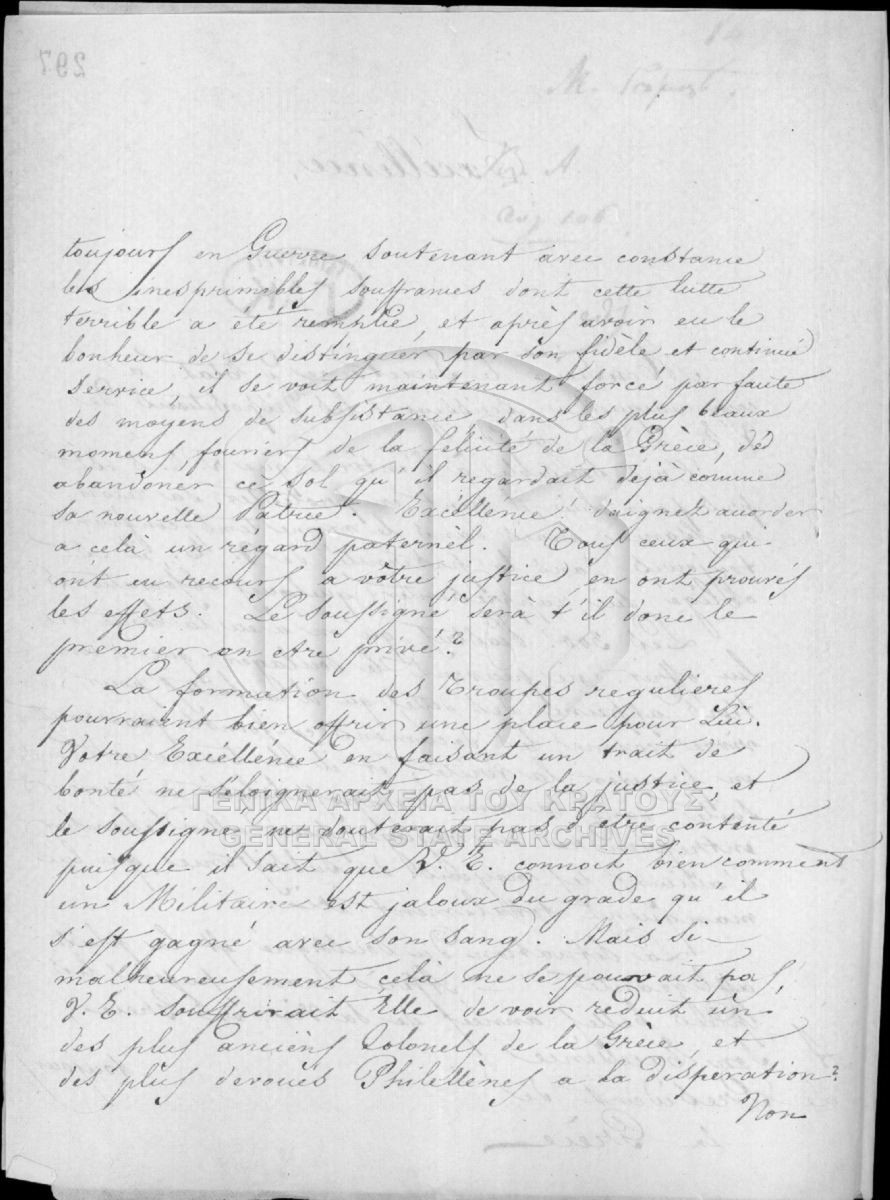 297
toujours en Guerre soutenant avec constance
les inesprimibles souffrances dont cette lutte
terrible a eté remplie, et après avoir eu le
bonheur de se distinguer par son fidèle et continué
service, il se voit maintenant forcé par faute
des moyens de subsistance, dans les plus beaux
momens, fouriers de la félicité de la Grèce, de
abandonér ce sol qu'il regardait dejà comme
sa nouvelle Patrie. Excéllence! daignez accorder
a celà un régard paternèl. Tous ceux qui
ont eu recours a vôtre justice en ont prouvés
les effets. Le soussigné serà t'il donc le
premier an etre privé?
La formation des Troupes regulieres
pourraient bien offrir une place pour Lui.
Votre Excéllénce en faisant un trait de
bonté ne s'éloignerait pas de la justice, et
le soussigné, ne douterait pas d'etre contenté
puisque il sait que V. E. connoit bien comment
un Militaire est jaloux du grade qu'il
s'est gagné avec son sang. Mais si
malheureusement celà ne se pouvait pas,
V. E. souffrirait Elle de voir réduit un
des plus anciëns Colonels de la Grèce, et
des plus devoués Philellènes a la disperation?
Non
ΓΕΝΙΚΑ ΑΡΧΕΙΑ ΤΟΥ ΚΡΑΤΟΥΣ
GENERAL STATE ARCHIVES